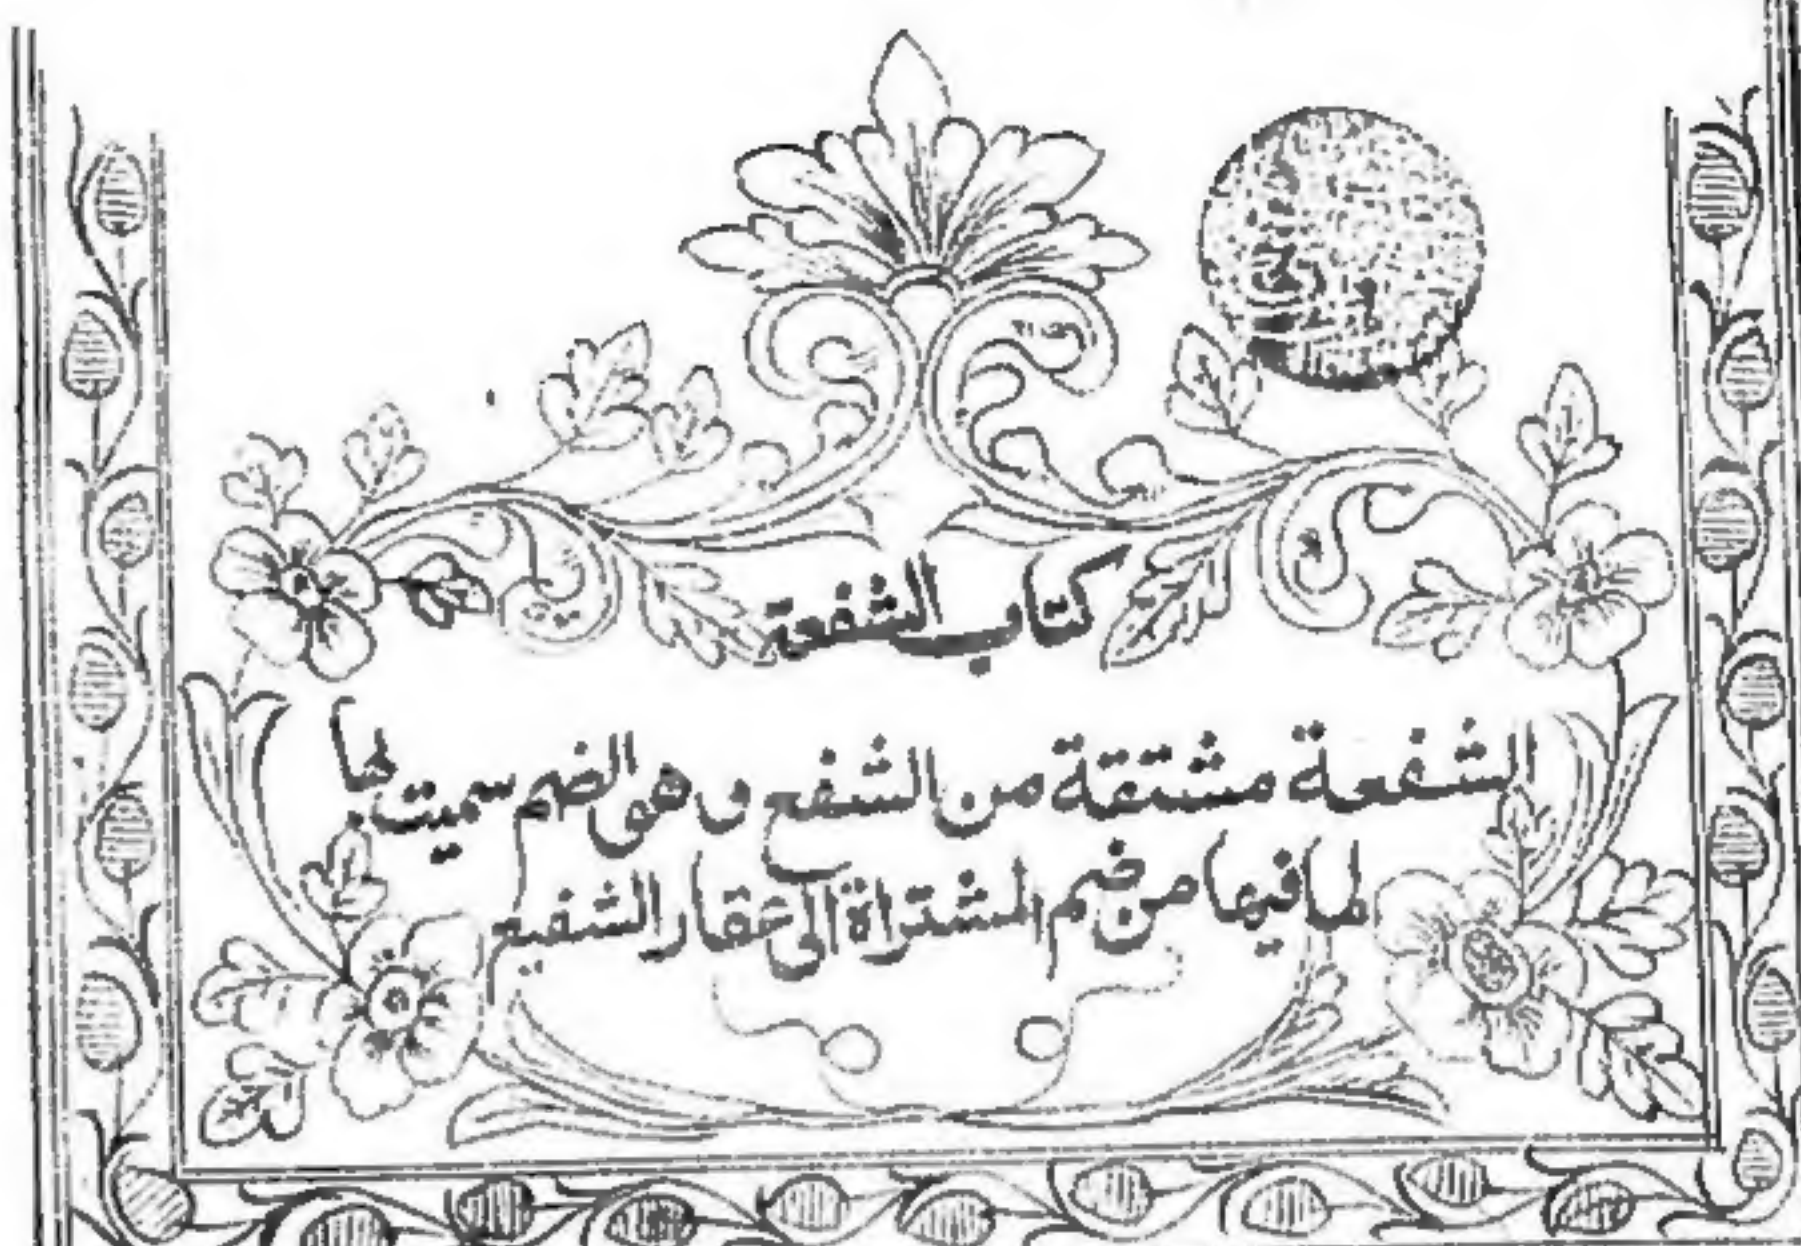 كتاب الشفعة
الشفعة مشتقة من الشفع وهو الضم سميت بها
لما فيها من ضم المشتراة الى عقار الشفيع